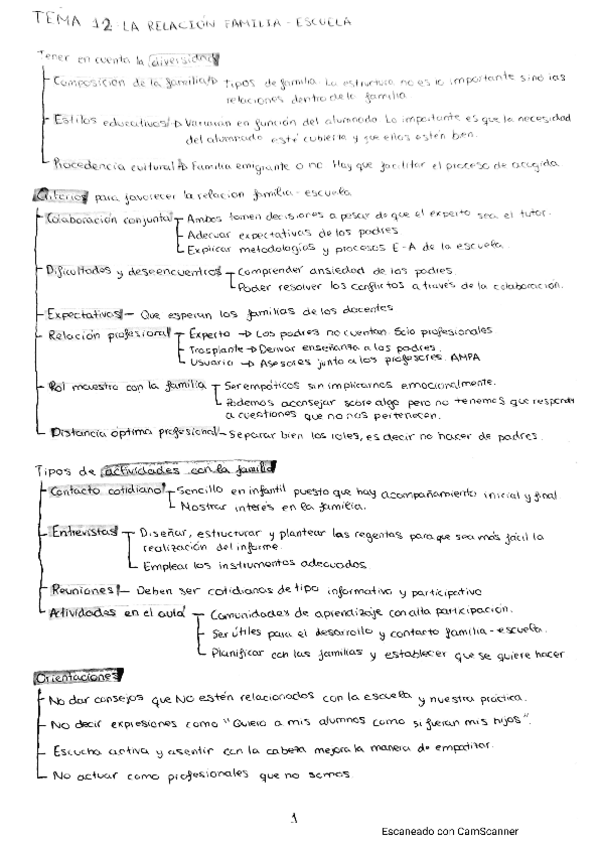 TEMA 12: LA RELACIÓN FAMILIA - ESCUELA
Tener en cuenta la diversidad
Composición de la familia → Tipos de familia. La estructura no es lo importante sino las
relaciones dentro de la familia
Estilos educativos → Variarán en función del alumnado. Lo importante es que la necesidad
del alumnado esté cubierta y que ellos estén bien.
Procedencia cultural → Familia emigrante o no. Hay que facilitar el proceso de acogida
Criterios para favorecer la relación familia - escuela
Colaboración conjunta Ambos tomen decisiones a pesar de que el experto sea el tutor.
Adecuar expectativas de los padres
Explicar metodologías y procesos E-A de la escuela.
Dificultades y desencuentros Comprender ansiedad de los padres.
Poder resolver los conflictos a través de la colaboración.
Expectativas - Que esperan las familias de los docentes
Relación profesional Experto → Los padres no cuentan. Solo profesionales
Trasplante → Derivar enseñanza a los padres.
Usuario → Asesores junto a los profesores. AMPA
Rol maestro con la familia Ser empáticos sin implicarnos emocionalmente.
Podemos aconsejar sobre algo pero no tenemos que responder
a cuestiones que no nos pertenecen.
Distancia óptima profesional - Separar bien los roles, es decir no hacer de padres.
Tipos de actividades con la familia
Contacto cotidiano Sencillo en infantil puesto que hay acompañamiento inicial y final
Mostrar interés en la familia.
Entrevistas Diseñar, estructurar y plantear las para que sea más fácil la
realización del informe.
Emplear los instrumentos adecuados
Reuniones - Deben ser cotidianas de tipo informativo y participativo
Actividades en el aula Comunidades de aprendizaje con alta participación.
Ser útiles para el desarrollo y contacto familia - escuela.
Planificar con las familias y establecer que se quiere hacer
Orientaciones
No dar consejos que NO estén relacionados con la escuela y nuestra práctica.
No decir expresiones como "Quiero a mis alumnos como si fueran mis hijos".
Escucha activa y asentir con la cabeza mejora la manera de empatizar.
No actuar como profesionales que no somos.
1
Escaneado con CamScanner